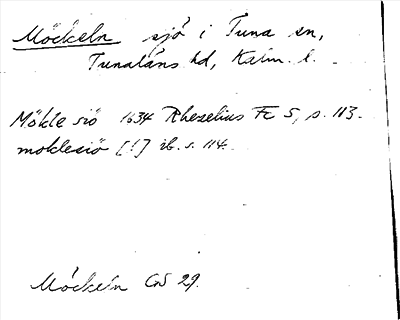 Möckeln sjö i Tuna sn,
Tunaläns hd, Kalm. l.
Mökle siö 1634 Rhezelius Fc 5, s. 113.
moklesiö [!] ib. s. 114.
Möckeln GS 29.